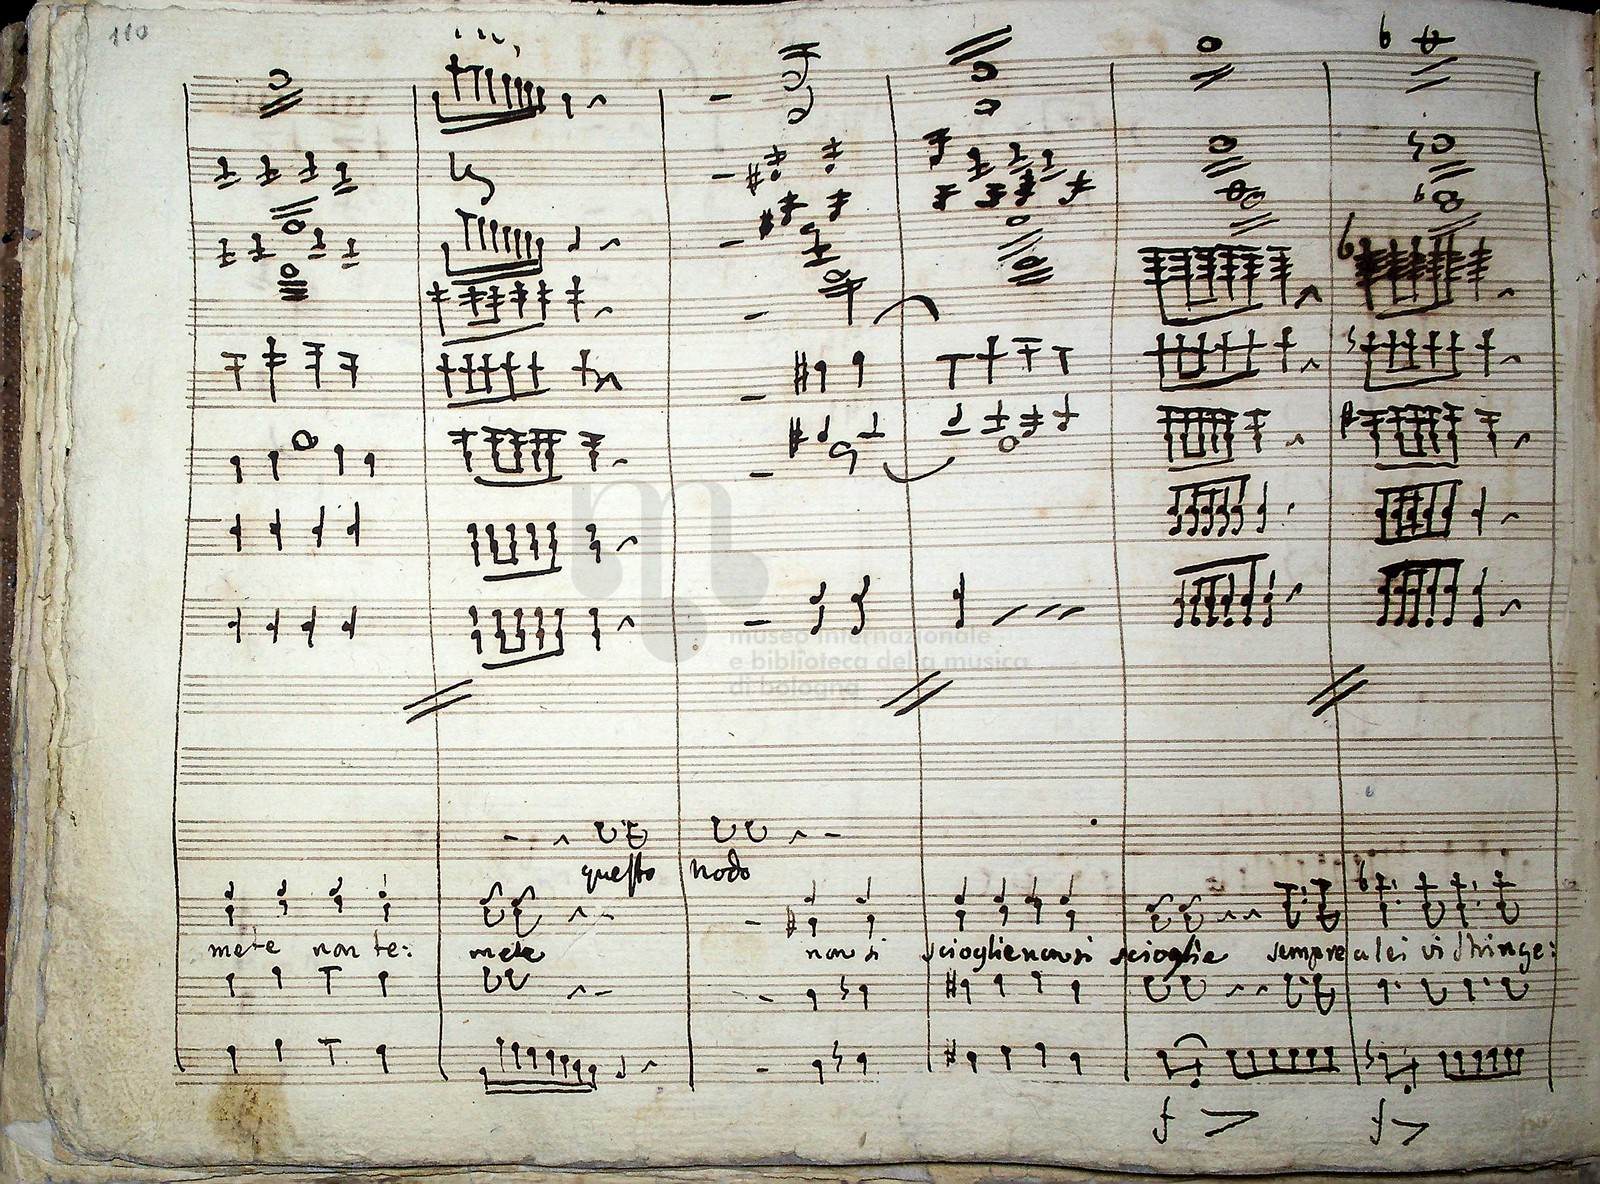 110
museo internazionale
e biblioteca della musica
di bologna
questo nodo
mete non te: mete non si scioglie non si scioglie sempre a lei vi stringe:
f f